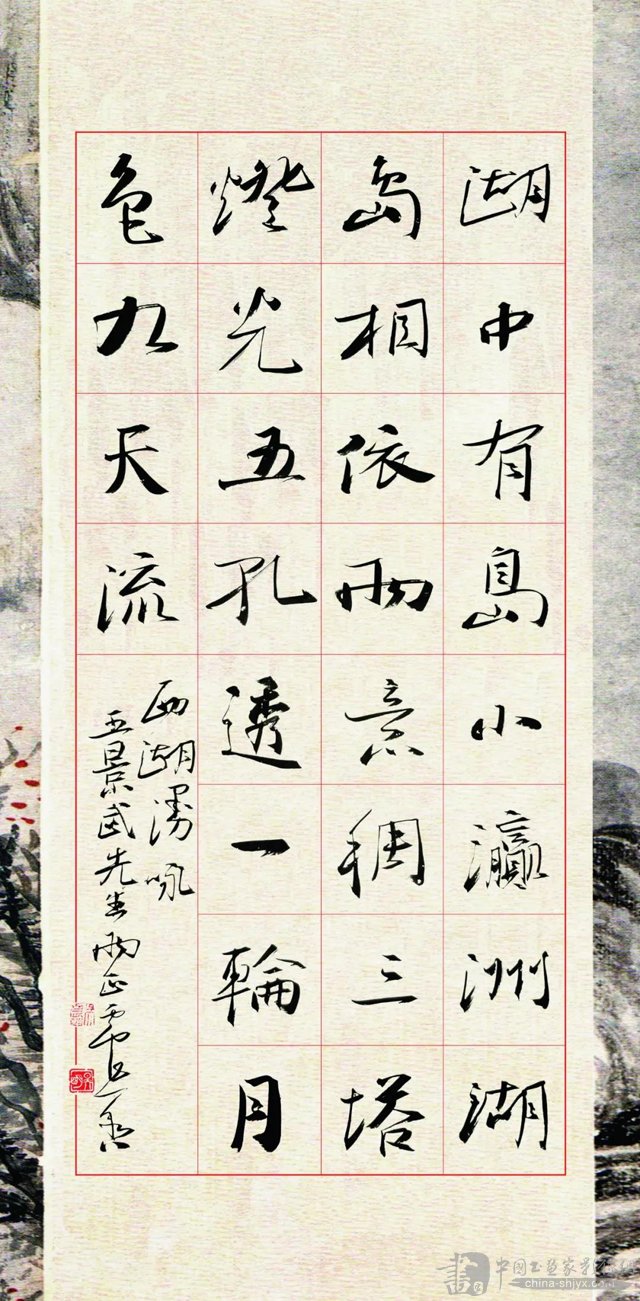 湖中有島小瀛洲湖
島相依兩意稠三塔
燈光五孔透一輪月
色九天流
西湖漫咏
王景武先生兩正
中国书画家
china-shjyx.com